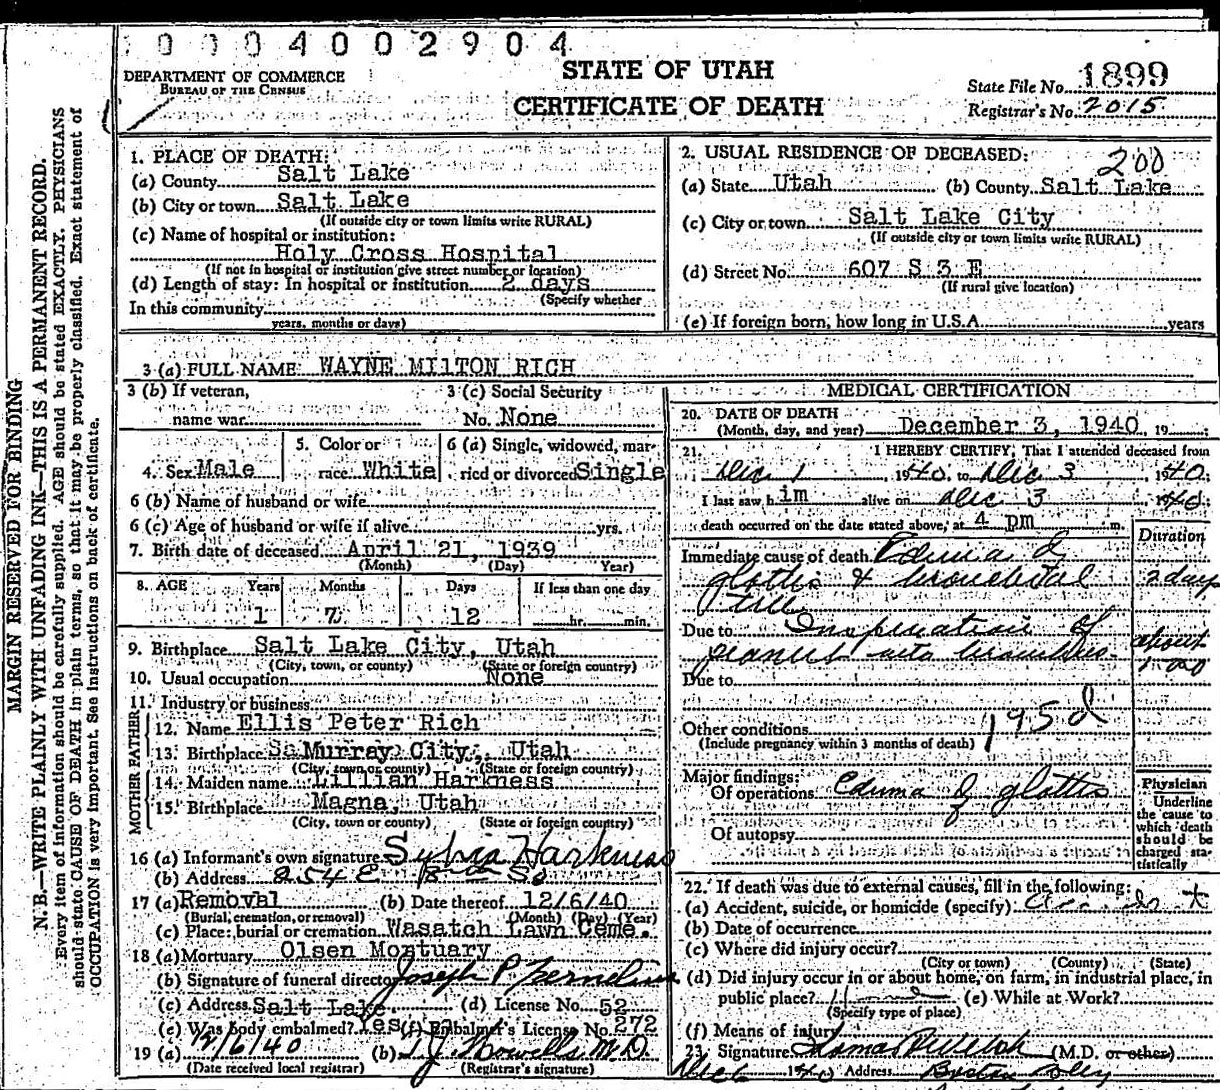 0004002904
DEPARTMENT OF COMMERCE
BUREAU OF THE CENSUS
STATE OF UTAH
CERTIFICATE OF DEATH
State File No. 1899
Registrar's No. 2015
MARGIN RESERVED FOR BINDING
N. B.—WRITE PLAINLY WITH UNFADING INK—THIS IS A PERMANENT RECORD.
Every item of information should be carefully supplied. AGE should be stated EXACTLY. PHYSICIANS
should state CAUSE OF DEATH in plain terms, so that it may be properly classified. Exact statement of
OCCUPATION is very important. See instructions on back of certificate.
1. PLACE OF DEATH:
(a) County Salt Lake
(b) City or town Salt Lake
(If outside city or town limits write RURAL)
(c) Name of hospital or institution:
Holy Cross Hospital
(If not in hospital or institution give street number or location)
(d) Length of stay: In hospital or institution 2 days
(Specify whether
In this community
years, months or days)
2. USUAL RESIDENCE OF DECEASED:
200
(a) State Utah (b) County Salt Lake
(c) City or town Salt Lake City
(If outside city or town limits write RURAL)
(d) Street No. 607 S 3 E
(If rural give location)
(e) If foreign born, how long in U.S.A. years
3 (a) FULL NAME WAYNE MILTON RICH
3 (b) If veteran,
name war
3 (c) Social Security
No. None
4. Sex Male
5. Color or
race White
6 (a) Single, widowed, mar-
ried or divorced Single
6 (b) Name of husband or wife
6 (c) Age of husband or wife if alive yrs.
7. Birth date of deceased April 21, 1939
(Month) (Day) Year)
8. AGE Years Months Days If less than one day
1 7 12 hr. min.
9. Birthplace Salt Lake City, Utah
(City, town, or county) (State or foreign country)
10. Usual occupation None
11. Industry or business
FATHER
12. Name Ellis Peter Rich
13. Birthplace Murray City, Utah
(City, town or county) (State or foreign country)
MOTHER
14. Maiden name Lillian Harkness
15. Birthplace Magna, Utah
(City, town or county) (State or foreign country)
16 (a) Informant's own signature Sylvia Harkness
(b) Address 254 E So
17 (a) Removal (b) Date thereof 12/6/40
(Burial, cremation, or removal) (Month) (Day) (Year)
(c) Place: burial or cremation Wasatch Lawn Ceme.
18 (a) Mortuary Olsen Mortuary
(b) Signature of funeral director Joseph P
(c) Address Salt Lake (d) License No. 52
(e) Was body embalmed? Yes (f) Embalmer's License No. 272
19 (a) 12/6/40 (b) T. J. Howells M.D.
(Date received local registrar) (Registrar's signature)
MEDICAL CERTIFICATION
20. DATE OF DEATH
(Month, day, and year) December 3, 1940, 19
21. I HEREBY CERTIFY, That I attended deceased from
Dec 1, 1940, to Dec 3, 1940;
I last saw him alive on Dec 3 1940;
death occurred on the date stated above, at 4 pm m.
Duration
Immediate cause of death Edema of
glottis & bronchial 2 days
Due to Inspiration of about
peanut into bronchus
Due to
Other conditions 195d
(Include pregnancy within 3 months of death)
Major findings:
Of operations Edema of glottis
Of autopsy
Physician
Underline
the cause to
which death
should be
charged sta-
tistically
22. If death was due to external causes, fill in the following:
(a) Accident, suicide, or homicide (specify) Accident
(b) Date of occurrence
(c) Where did injury occur?
(City or town) (County) (State)
(d) Did injury occur in or about home, on farm, in industrial place, in
public place? Home (e) While at Work?
(Specify type of place)
(f) Means of injury
23. Signature (M.D. or other)
Dec 6 1940 Address Boston Bldg